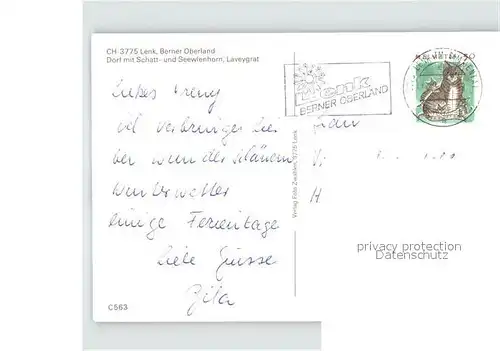 CH 3775 Lenk, Berner Oberland
Dorf mit Schatt- und Seewlenhorn, Laveygrat
HELVETIA 50
Lenk
BERNER OBERLAND
Liebes Vreny
wir verbringen hier
bei wunderschönem
Winterwetter
einige Ferientage
Liebe Grüsse
Frau
H
Verlag Foto Zwahlen, 3775 Lenk
privacy protection
Datenschutz
C563